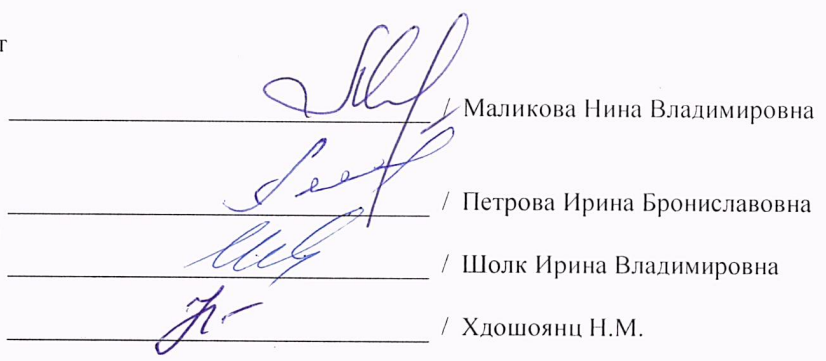 т
/ Маликова Нина Владимировна
/ Петрова Ирина Брониславовна
/ Шолк Ирина Владимировна
/ Хдошоянц Н.М.